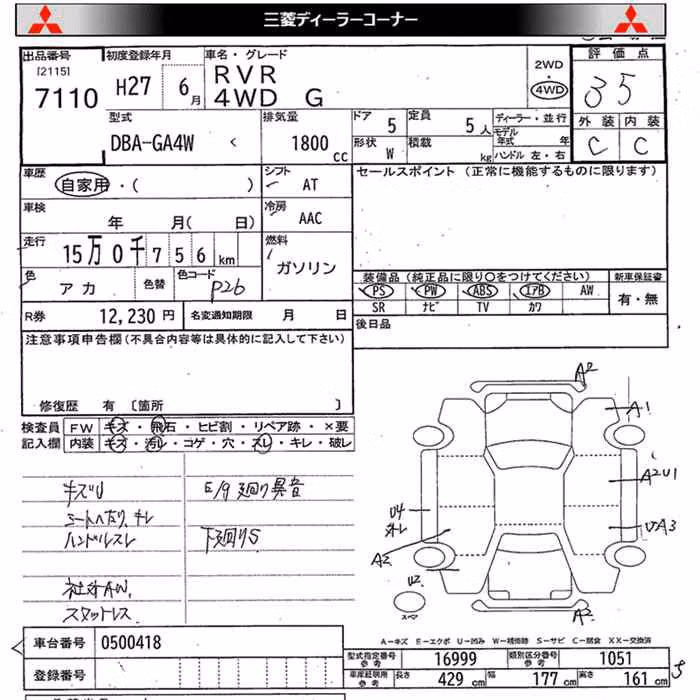 三菱ディーラーコーナー
出品番号 初度登録年月 車名・グレード 評価点
[2115] 7110 H27 6月 RVR 4WD G 2WD・4WD 35
型式 排気量 ドア 定員 ディーラー・並行 外装 内装
DBA-GA4W 1800cc 5 5人 モデル年式 年 C C
形状 W 積載 kg ハンドル 左・右
車歴 シフト セールスポイント (正常に機能するものに限ります)
自家用・( ) AT
車検 冷房
年 月( 日) AAC
走行 15万0千756km 燃料 ガソリン
色 アカ 色替 色コード P26
装備品(純正品に限り○をつけてください) 新車保証書
PS PW ABS エアB AW 有・無
SR ナビ TV カワ
R券 12,230円 名変通知期限 月 日 後日品
注意事項申告欄(不具合内容等は具体的に記入して下さい)
修復歴 有 〔箇所 〕
検査員 FW キズ・飛石・ヒビ割・リペア跡・×要
記入欄 内装 キズ・汚レ・コゲ・穴・スレ・キレ・破レ
キズU E/g廻り異音
シートへたり、キレ
ハンドルスレ 下廻りS
社外AW、
スタットレス
A2
A1
A2U1
U4
UA3
A2
U2
スペア
A2
A-キズ E-エクボ U-凹み W-補修跡 S-サビ C-腐食 XX-交換済
車台番号 0500418
登録番号
型式指定番号 参考 16999 類別区分番号 参考 1051
車庫証明用 参考 長さ 429cm 幅 177cm 高さ 161cm
S